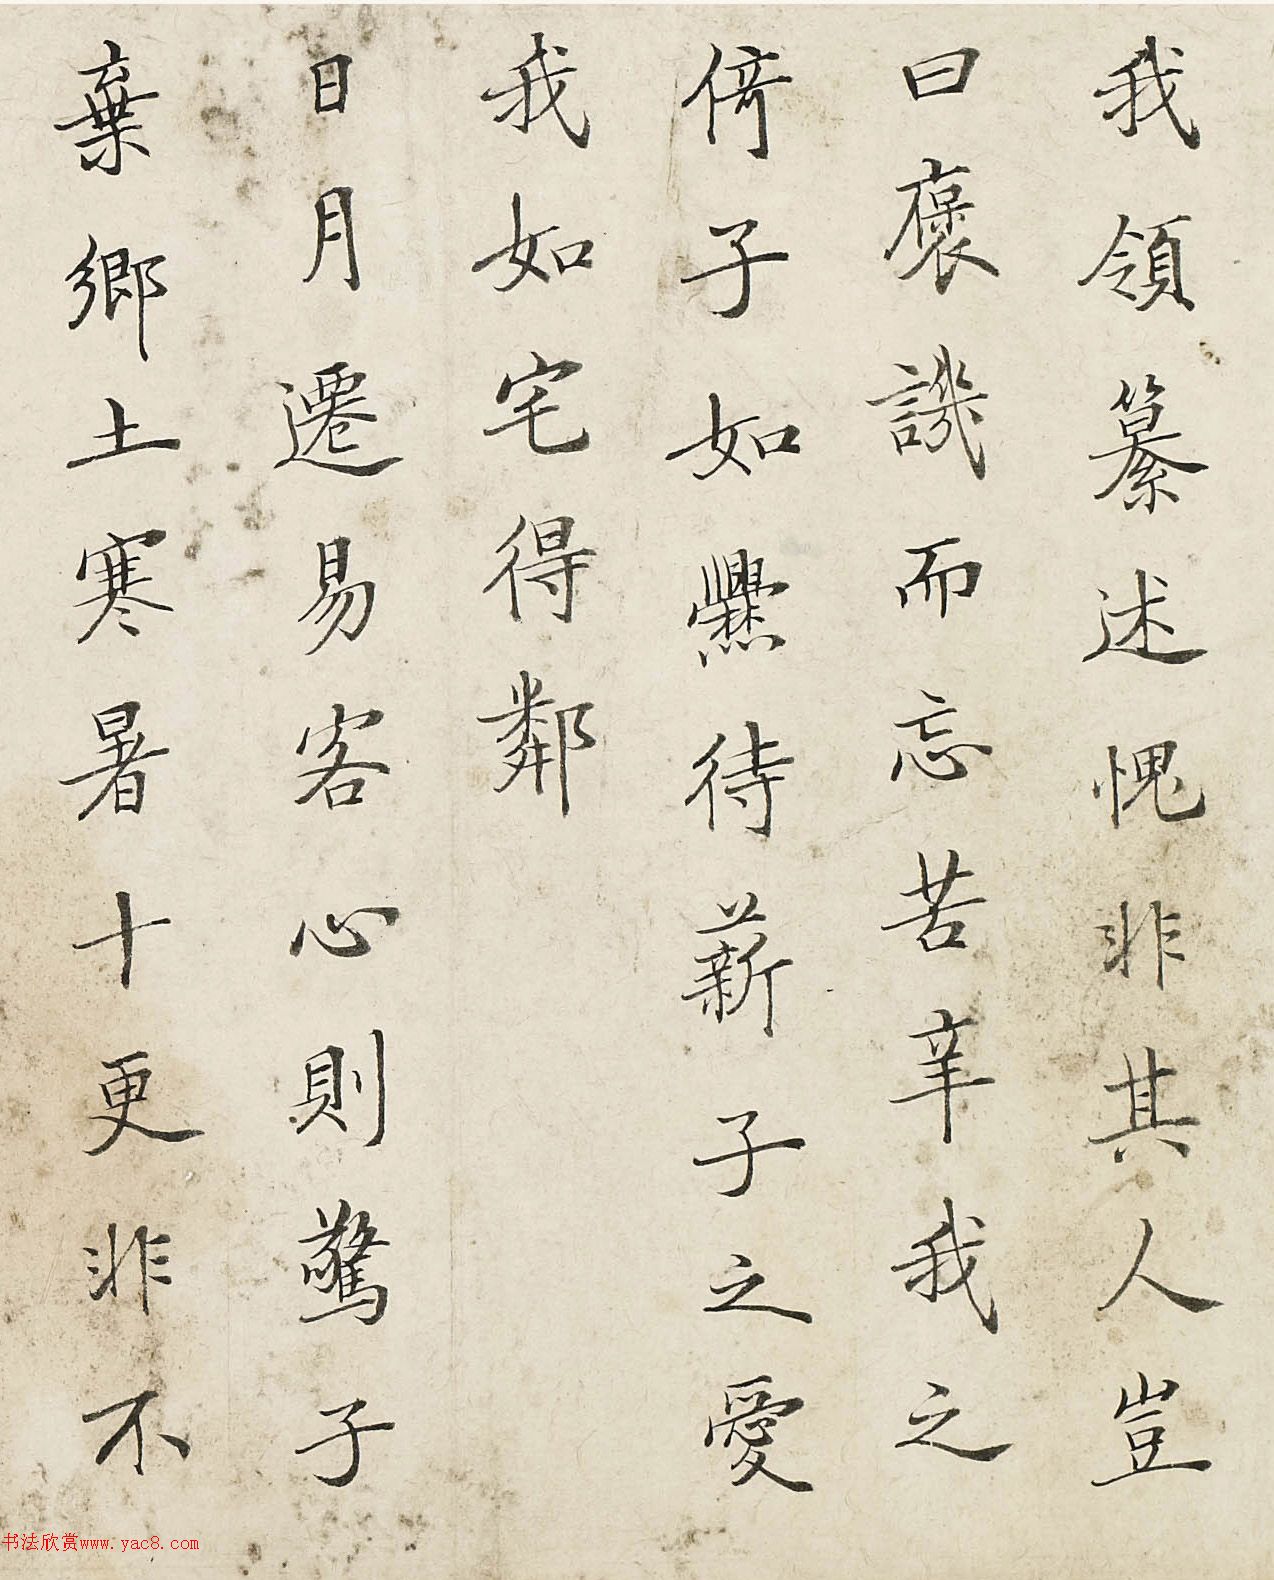 我領纂述愧非其人豈
曰褒譏而忘苦辛我之
倚子如爨待薪子之愛
我如宅得鄰
日月遷易客心則驚子
棄鄉土寒暑十更非不
书法欣赏www.yac8.com